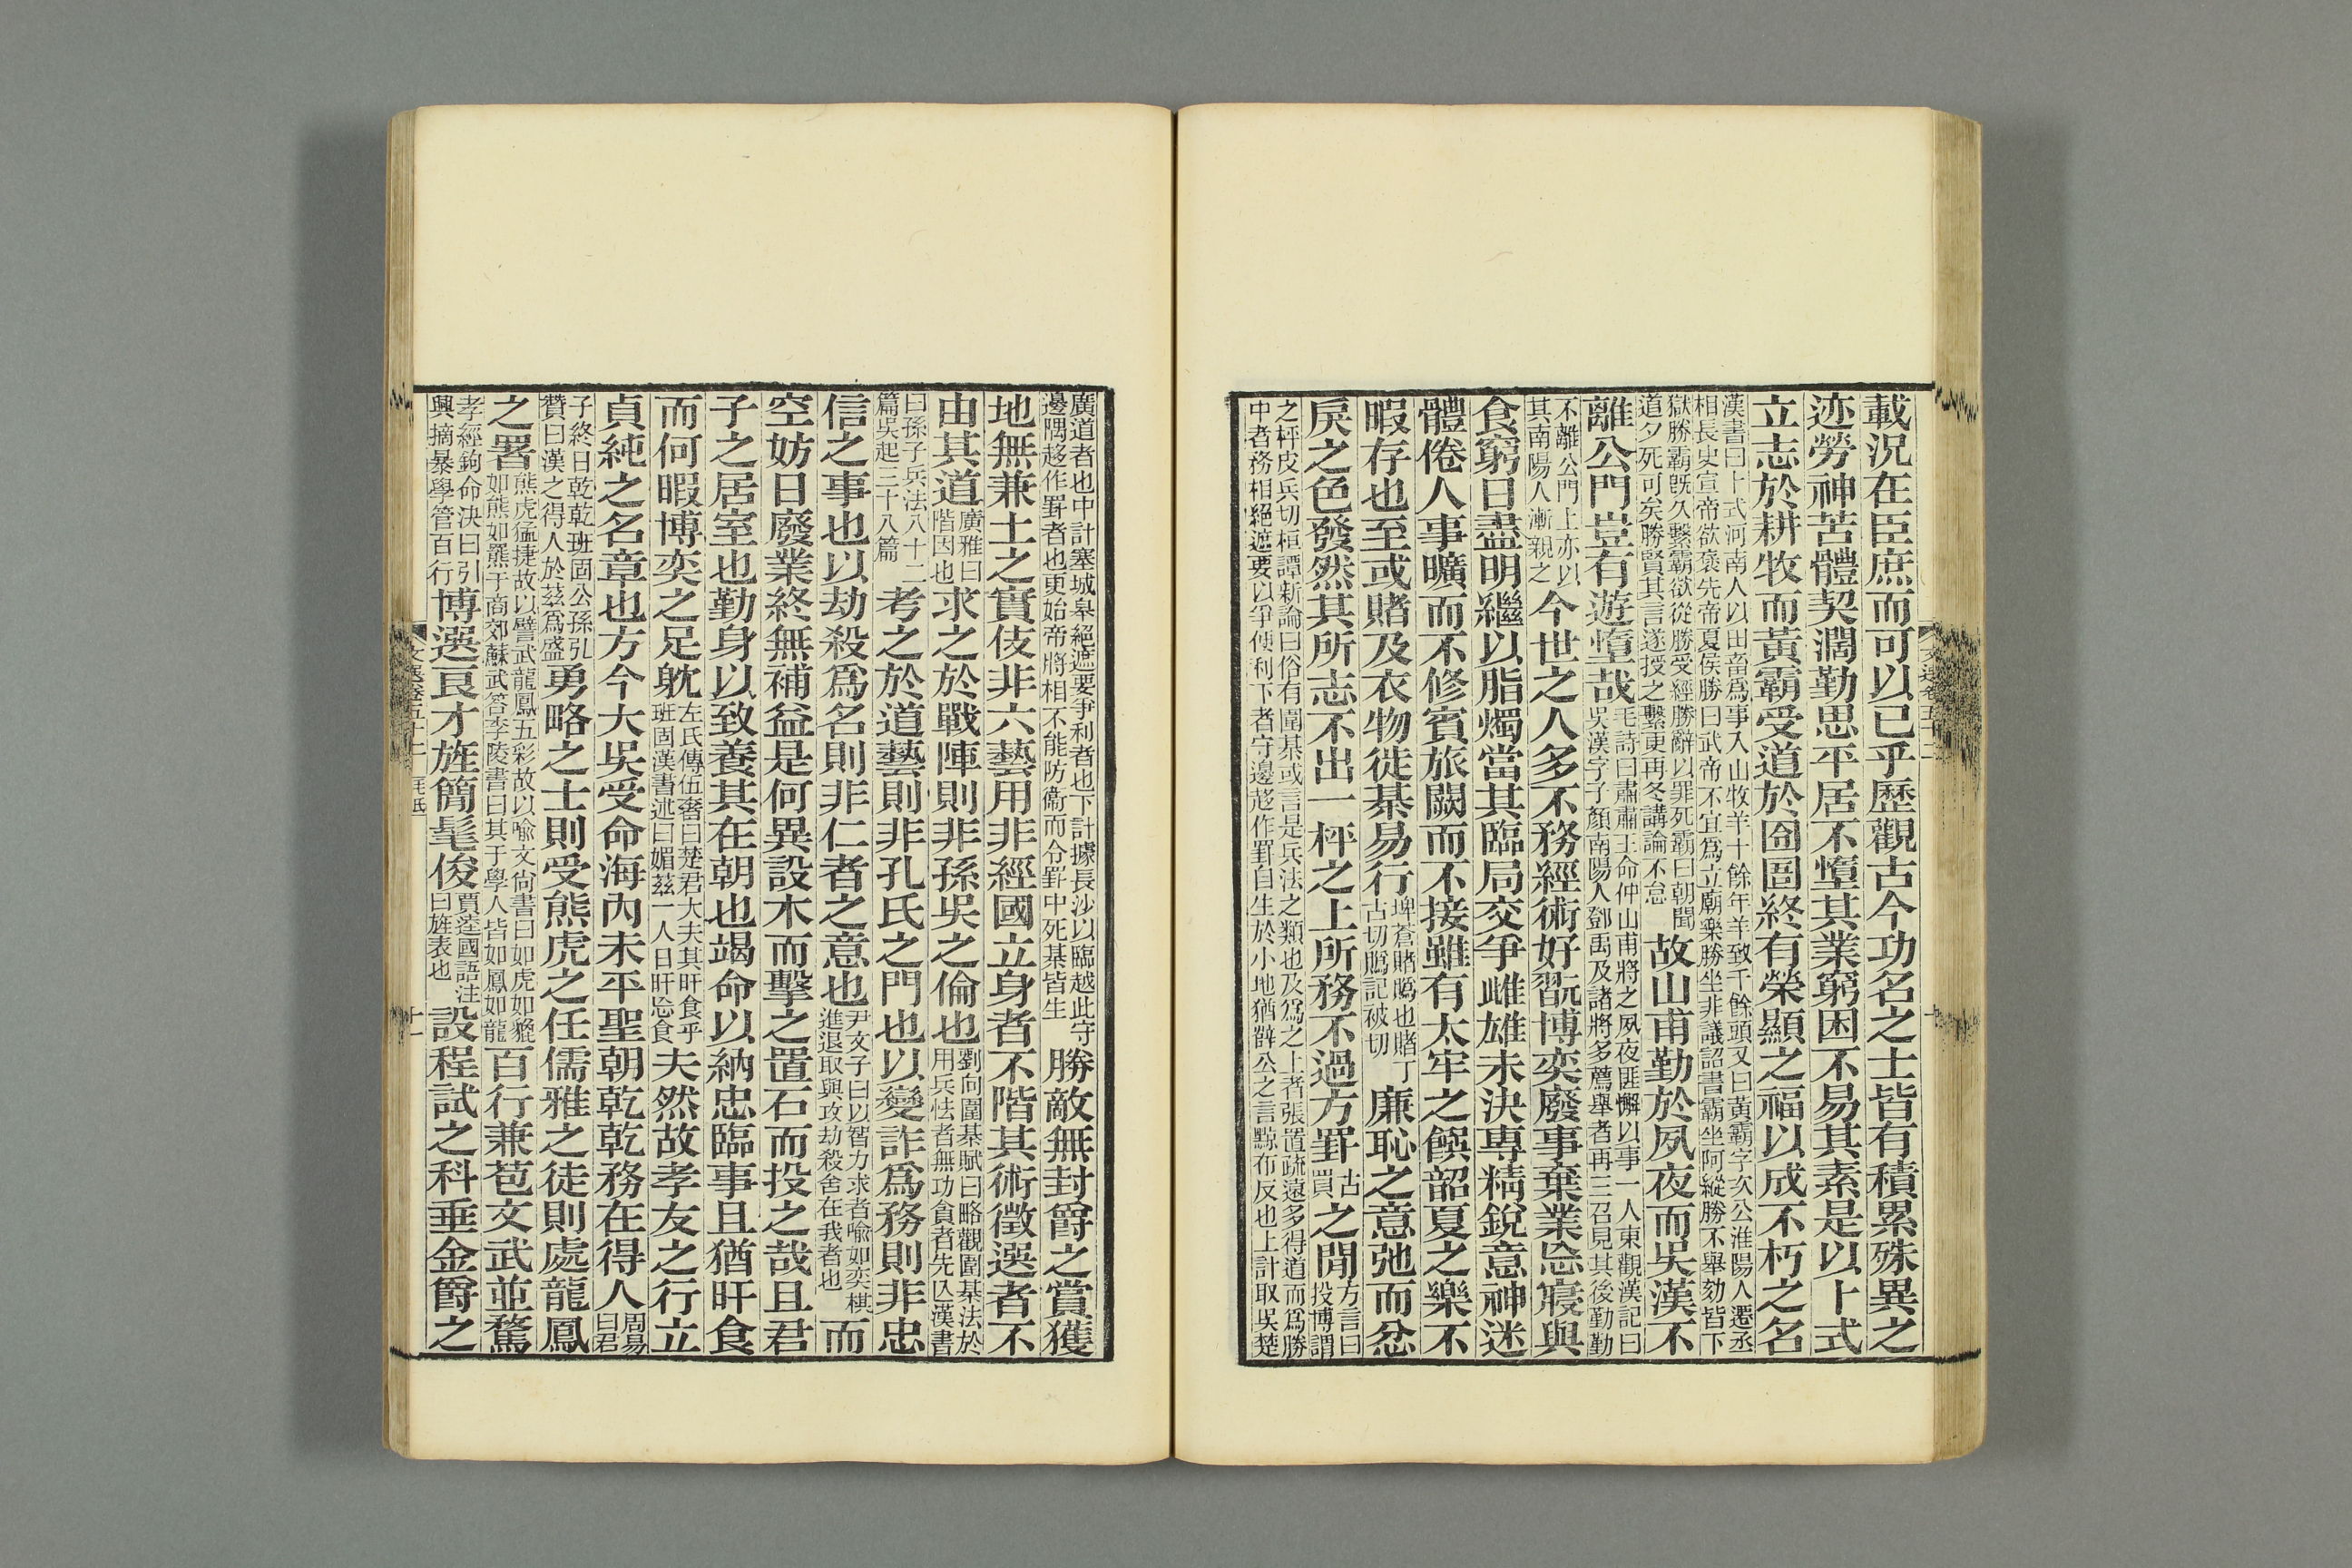 載況在臣庶而可以已乎歷觀古今功名之士皆有積累殊異之
迹勞神苦體契濶勤思平居不墮其業窮困不易其素是以卜式
立志於耕牧而黃霸受道於囹圄終有榮顯之福以成不朽之名
漢書曰卜式河南人以田畜爲事入山牧羊十餘年羊致千餘頭又曰黃霸字次公淮陽人遷丞
相長史宣帝欲襃先帝夏侯勝曰武帝不宜爲立廟樂勝坐非議詔書霸坐阿縱勝不舉劾皆下
獄勝霸旣久繫霸欲從勝受經勝辭以罪死霸曰朝聞
道夕死可矣勝賢其言遂授之繫更再冬講論不怠
故山甫勤於夙夜而吳漢不
離公門豈有遊墮哉
毛詩曰肅肅王命仲山甫將之夙夜匪懈以事一人東觀漢記曰
吳漢字子顏南陽人鄧禹及諸將多薦舉者再三召見其後勤勤
不離公門上亦以
其南陽人漸親之
今世之人多不務經術好翫博奕廢事棄業忘寢與
食窮日盡明繼以脂燭當其臨局交爭雌雄未決專精銳意神迷
體倦人事曠而不修賓旅闕而不接雖有太牢之饌韶夏之樂不
暇存也至或賭及衣物徙棊易行
埤蒼賭賭也賭丁
古切賭記破切
廉恥之意弛而忿
戾之色發然其所志不出一枰之上所務不過方罫
古
買
之閒
方言曰
投博謂
之枰皮兵切桓譚新論曰俗有圍棊或言是兵法之類也及爲之上者張置疏遠多得道而爲勝
中者務相絕遮要以爭便利下者守邊趍作罫自生於小地猶薛公之言黥布反也上計取吳楚
廣道者也中計塞城皋絕遮要爭利者也下計據長沙以臨越此守
邊隅趍作罫者也更始帝將相不能防衞而令罫中死棊皆生
勝敵無封爵之賞獲
地無兼土之實伎非六藝用非經國立身者不階其術徵選者不
由其道
廣雅曰
階因也
求之於戰陣則非孫吳之倫也
劉向圍棊賦曰略觀圍棊法於
用兵怯者無功貪者先亾漢書
曰孫子兵法八十二
篇吳起三十八篇
考之於道藝則非孔氏之門也以變詐爲務則非忠
信之事也以劫殺爲名則非仁者之意也
尹文子曰以智力求者喻如奕棋
進退取與攻劫殺舍在我者也
而
空妨日廢業終無補益是何異設木而擊之置石而投之哉且君
子之居室也勤身以致養其在朝也竭命以納忠臨事且猶旰食
而何暇博奕之足躭
左氏傳伍奢曰楚君大夫其旰食乎
班固漢書述曰媚茲一人日旰忘食
夫然故孝友之行立
貞純之名章也方今大吳受命海內未平聖朝乾乾務在得人
周易
曰君
子終日乾乾班固公孫弘
贊曰漢之得人於茲爲盛
勇略之士則受熊虎之任儒雅之徒則處龍鳳
之署
熊虎猛捷故以譬武龍鳳五彩故以喻文尙書曰如虎如貔
如熊如羆于商郊蘇武答李陵書曰其于學人皆如鳳如龍
百行兼苞文武並騖
孝經鉤命決曰引
興摘暴學管百行
博選良才旌簡髦俊
賈逵國語注
曰旌表也
設程試之科垂金爵之
文選卷五十二
十一